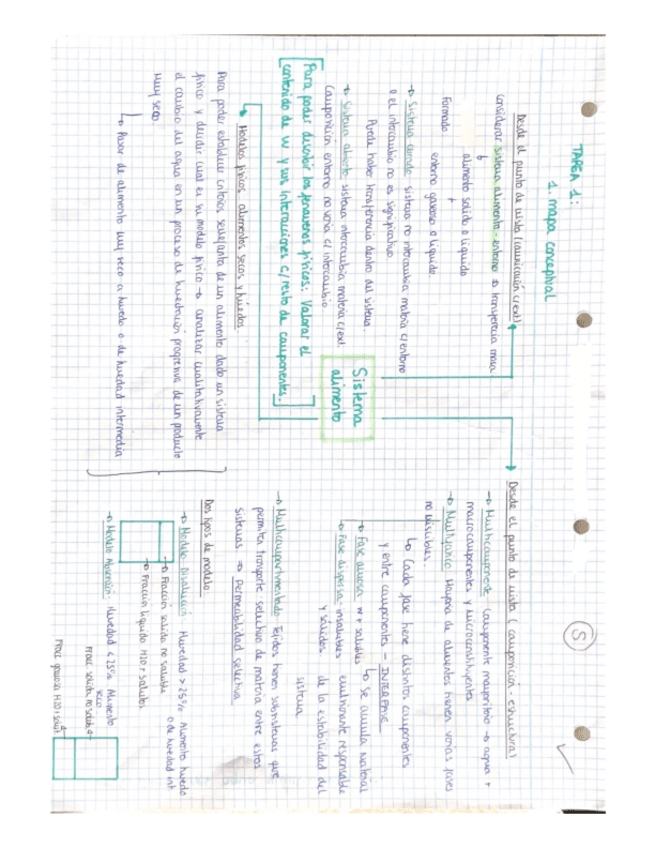 TAREA 1:
1. mapa conceptual
Desde el punto de vista (comunicación c/ext)
Considerar sistema alimento - entorno → transferencia masa
alimento solido o liquido
Formado +
entorno gaseoso o liquido.
→ Sistema cerrado sistema no intercambia materia c/entorno
o el intercambio no es significativo
Puede haber transferencia dentro del sistema.
→ Sistema abierto sistema intercambia materia c/ext.
Composición entorno no varia c/ intercambio
[Para poder describir los fenomenos físicos: Valorar el
contenido de w y sus interacciones c/resto de componentes.]
Sistema
alimento
Modelos físicos alimentos secos y húmedos
Para poder establecer criterios de un alimento dado un sistema
físico y decidir cual es su modelo físico → analizar cualitativamente
el cambio del agua en un proceso de humectación progresiva de un producto
muy seco
↳ Pasar de alimento muy seco a húmedo o de humedad intermedia
Desde el punto de vista (composición - estructura)
→ Multicomponente componente mayoritario → agua +
macrocomponentes y microconstituyentes
→ Multifásico Mayoría de alimentos tienen varias fases
no visibles.
↳ Cada fase tiene distintos componentes
y entre componentes - INTERFASE
→ Fase acuosa w + solubles ↳ se acumula material
→ Fase dispersa insolubles emulsionante responsable
y sólidos de la estabilidad del
sistema
→ Multicompartimentado Tejidos tienen subsistemas que
permiten transporte selectivo de materia entre estos
sistemas → Permeabilidad selectiva
Dos tipos de modelo:
→ Modelo Disolución Humedad > 25% Alimento húmedo
o de humedad int
→ Fracción solida no soluble
→ Fracción liquido H2O + solutos
→ Modelo Adsorción: Humedad < 25% Alimento
seco
Fracc solida no solub
Fracc gaseosa H2O + solut
5